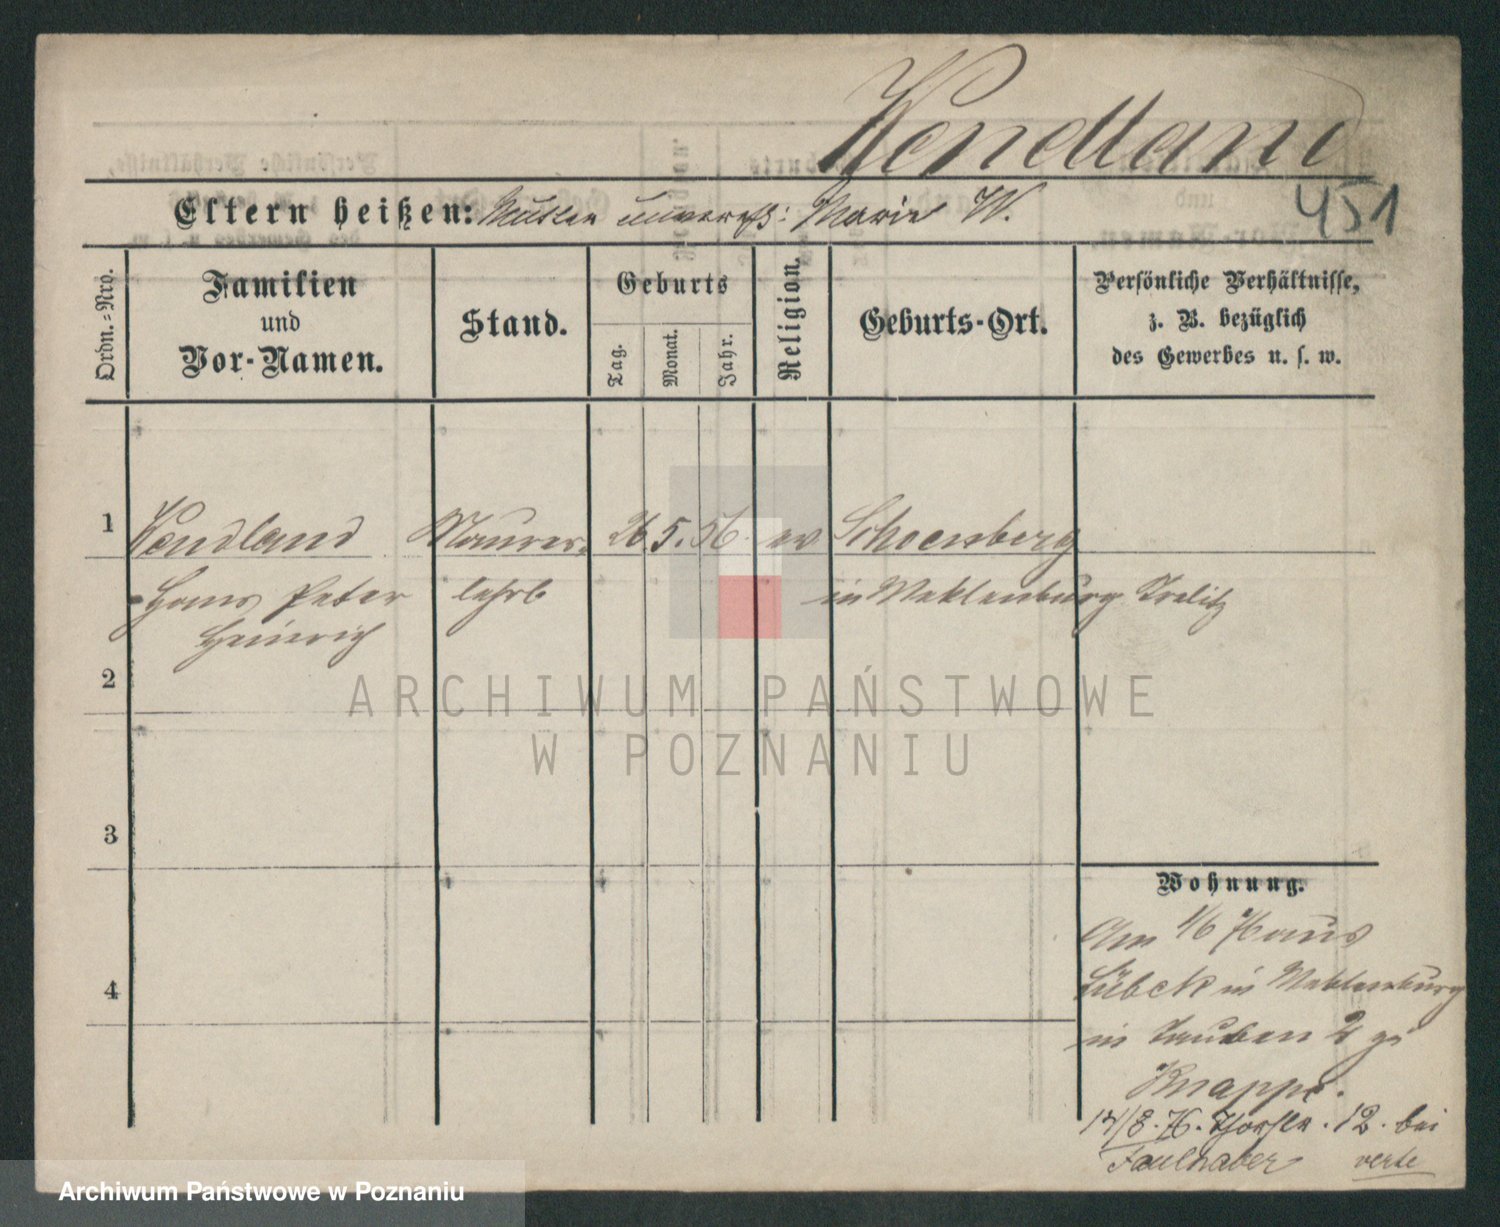 Wendland
Eltern heißen: Mutter unvereh: Marie W.
451
Ordn.-Nro.
Familien
und
Vor-Namen.
Stand.
Geburts
Tag.
Monat.
Jahr.
Religion.
Geburts-Ort.
Persönliche Verhältnisse,
z. B. bezüglich
des Gewerbes u. s. w.
1 Wendland Maurer- 26. 5. 56. ev Schoenberg
Hans Peter lehrl in Meklenburg Strelitz
Heinrich
2
3
4
Wohnung.
Am 1/6 76 aus
Lübeck in Meklenburg
in Tauben 2 ge
Knappe.
17/8. 76. Thorstr. 12. bei
Faulhaber verte
ARCHIWUM PAŃSTWOWE
W POZNANIU
Archiwum Państwowe w Poznaniu